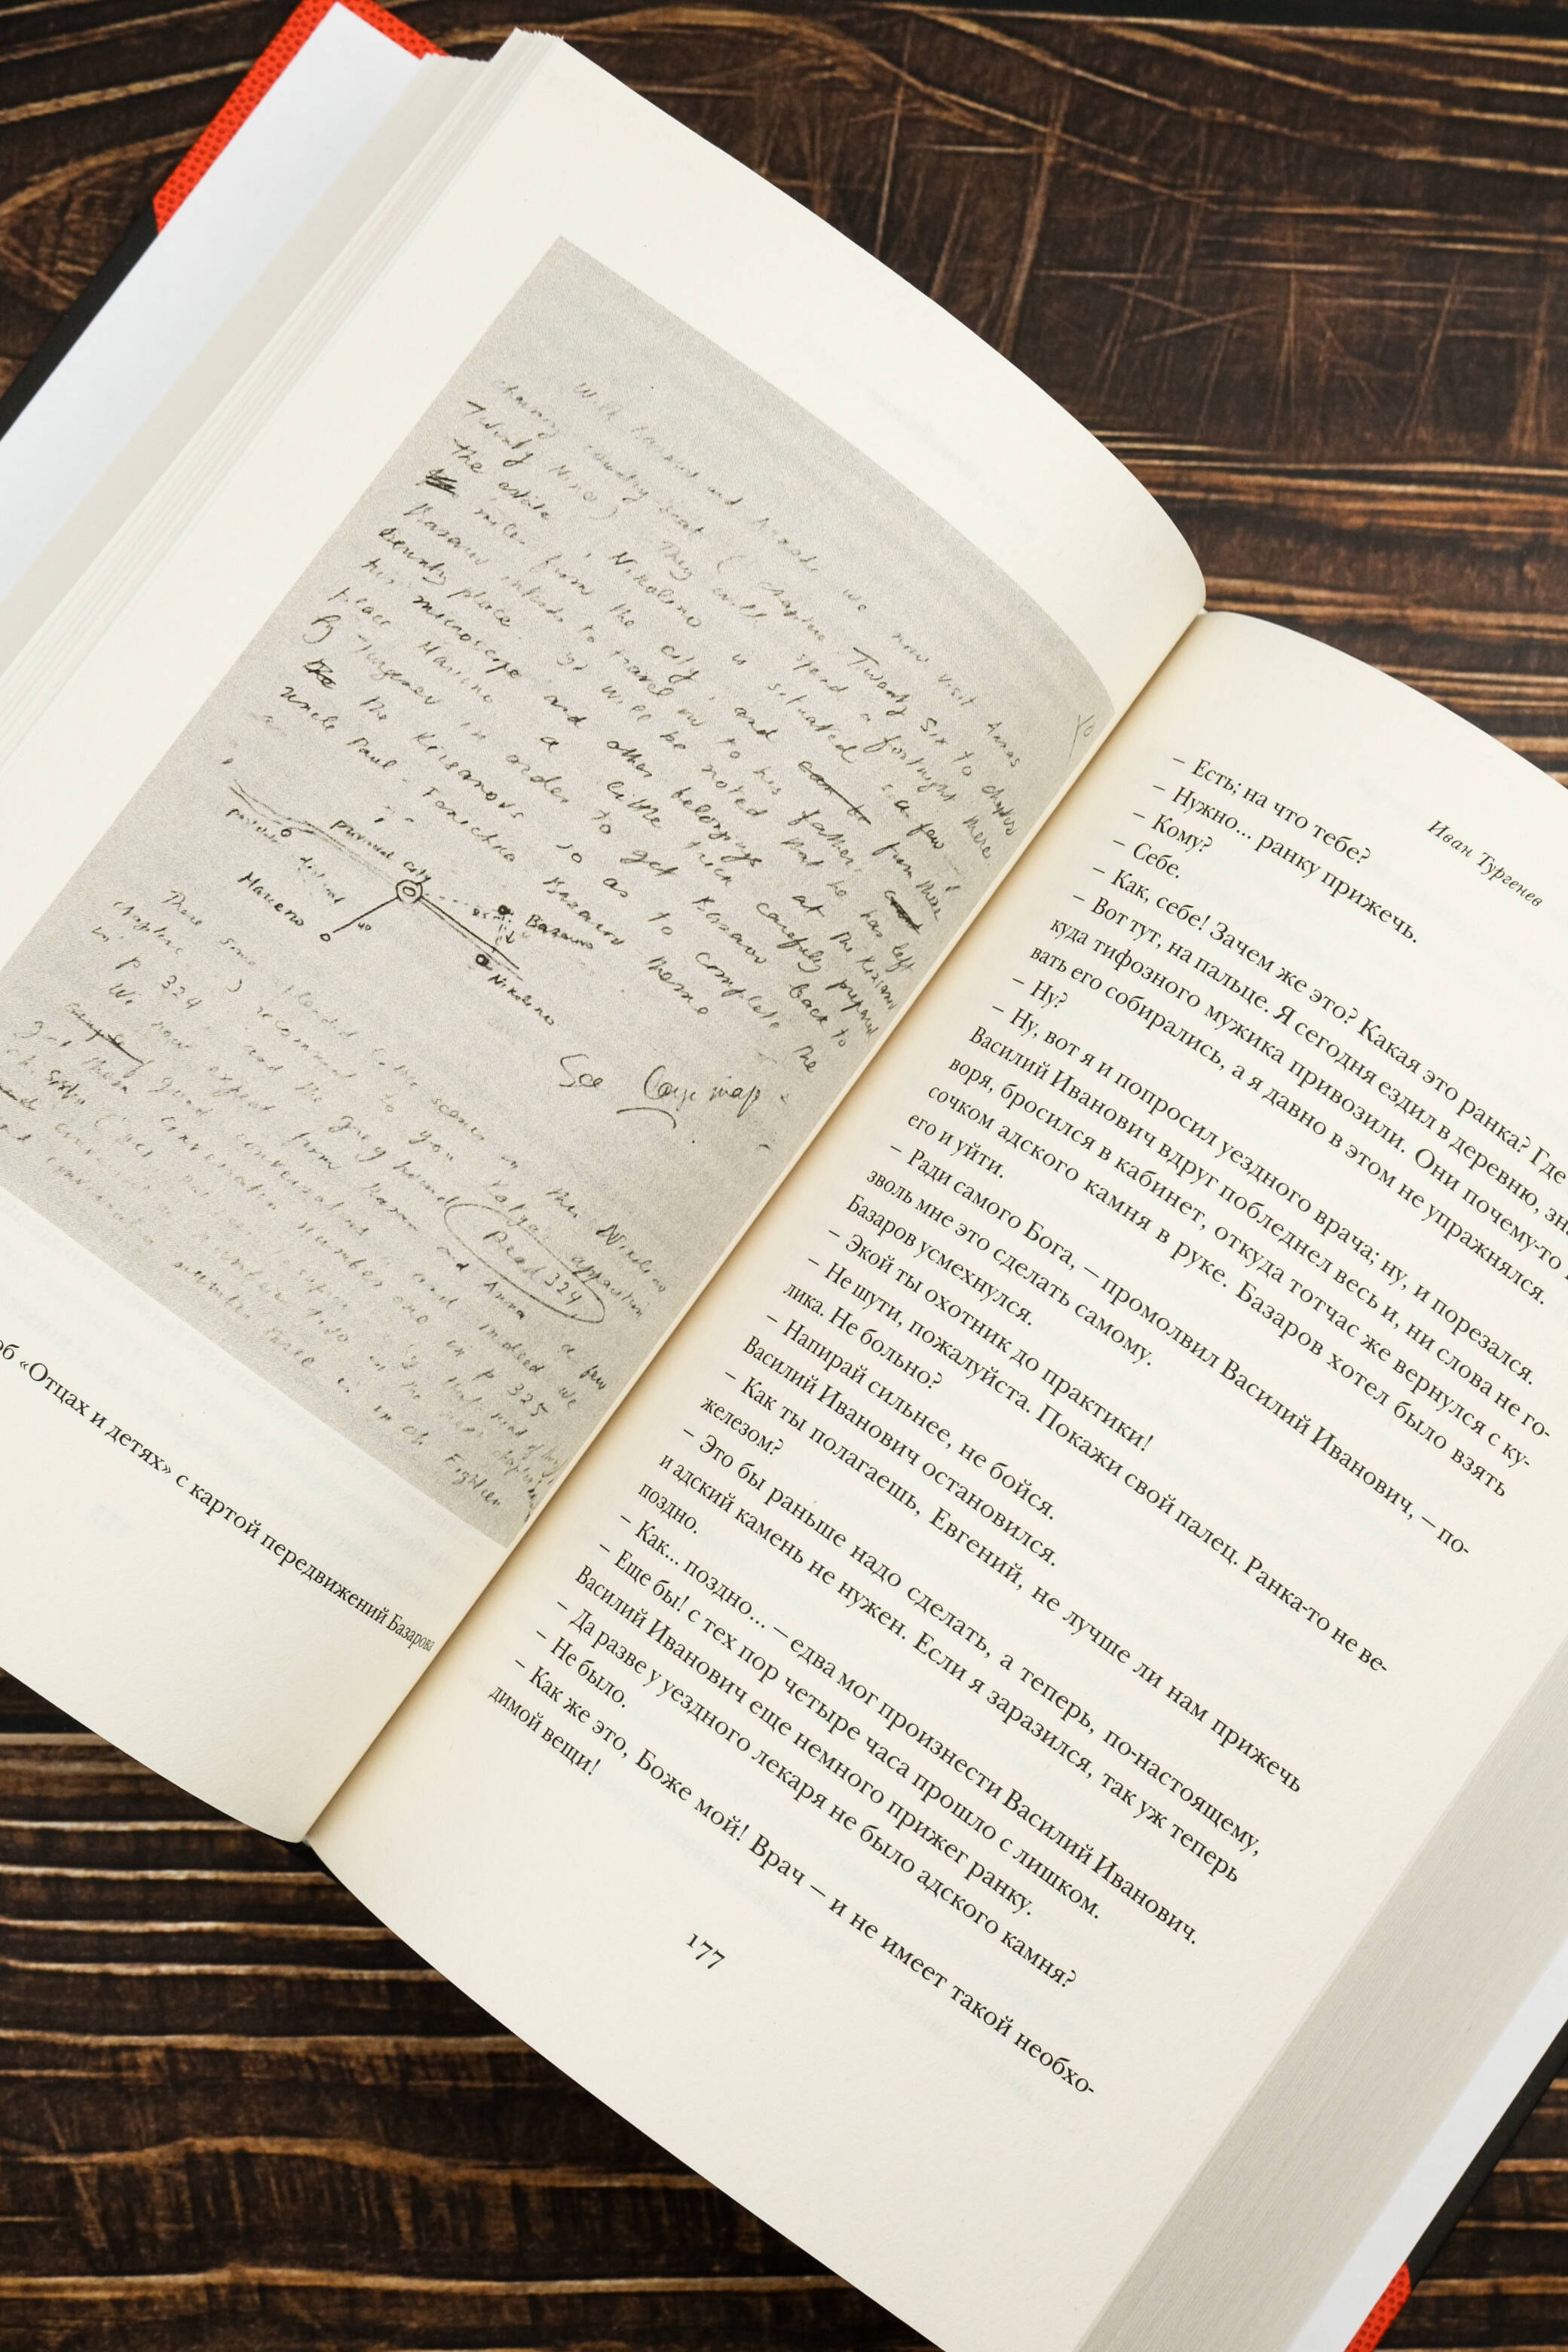 With Bazarov and Arcade we now visit Annas
charming country seat ( chapters Twenty Six to chapter
Twenty Nine) They will spend a fortnight there.
The estate, Nikolino is situated a few
miles from the city, and from there
Bazarov intends to travel on to his father's
country place. It will be noted that he has left
his microscope and other belongings at the Kirsanov
place Marieno a little trick carefully prepared
by Turgenev in order to get Bazarov back to
the Kirsanovs so as to complete the
uncle Paul - Fenichka Bazarov theme
provincial city
Marieno
Bazarov
Nikolino
See large map
There some splendid little scenes in this Nikolino
chapters
p 324, and the grey hound
Read 324
We now expect from Bazarov and Anna a few
good conversations and indeed we
get them conversation number one on p 325
number three in ch
Eighteen
об «Отцах и детях» с картой передвижений Базарова
Иван Тургенев
– Есть; на что тебе?
– Нужно... ранку прижечь.
– Кому?
– Себе.
– Как, себе! Зачем же это? Какая это ранка? Где
– Вот тут, на пальце. Я сегодня ездил в деревню, зна
куда тифозного мужика привозили. Они почему-то
вать его собирались, а я давно в этом не упражнялся.
– Ну?
– Ну, вот я и попросил уездного врача; ну, и порезался.
Василий Иванович вдруг побледнел весь и, ни слова не го-
воря, бросился в кабинет, откуда тотчас же вернулся с ку-
сочком адского камня в руке. Базаров хотел было взять
его и уйти.
– Ради самого Бога, – промолвил Василий Иванович, – по-
зволь мне это сделать самому.
Базаров усмехнулся.
– Экой ты охотник до практики!
– Не шути, пожалуйста. Покажи свой палец. Ранка-то не ве-
лика. Не больно?
– Напирай сильнее, не бойся.
Василий Иванович остановился.
– Как ты полагаешь, Евгений, не лучше ли нам прижечь
железом?
– Это бы раньше надо сделать, а теперь, по-настоящему,
и адский камень не нужен. Если я заразился, так уж теперь
поздно.
– Как... поздно... – едва мог произнести Василий Иванович.
– Еще бы! с тех пор четыре часа прошло с лишком.
Василий Иванович еще немного прижег ранку.
– Да разве у уездного лекаря не было адского камня?
– Не было.
– Как же это, Боже мой! Врач – и не имеет такой необхо-
димой вещи!
177